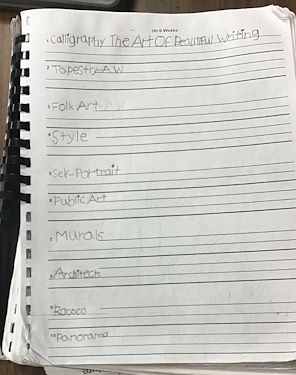 5th 6 Weeks
1. Calligraphy The Art Of Beautiful Writing
2. Tapestry-AW
3. Folk Art-AW
4. Style
5. Self-Portrait
6. Public Art
7. Murals
8. Architect
9. Rococo
10. Panorama